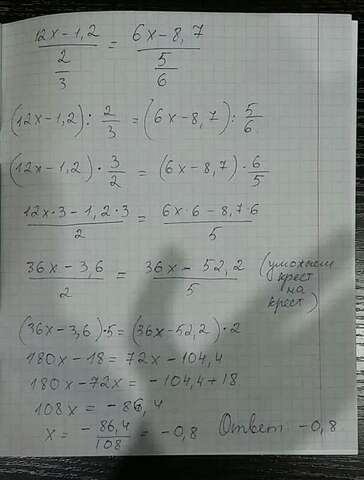 (12x-1,2)/(2/3) = (6x-8,7)/(5/6)
(12x-1,2) : 2/3 = (6x-8,7) : 5/6
(12x-1,2) · 3/2 = (6x-8,7) · 6/5
(12x·3-1,2·3)/2 = (6x·6-8,7·6)/5
(36x-3,6)/2 = (36x-52,2)/5 (умножаем
крест
на
крест)
(36x-3,6)·5 = (36x-52,2)·2
180x-18 = 72x-104,4
180x-72x = -104,4+18
108x = -86,4
x = -86,4/108 = -0,8 Ответ -0,8